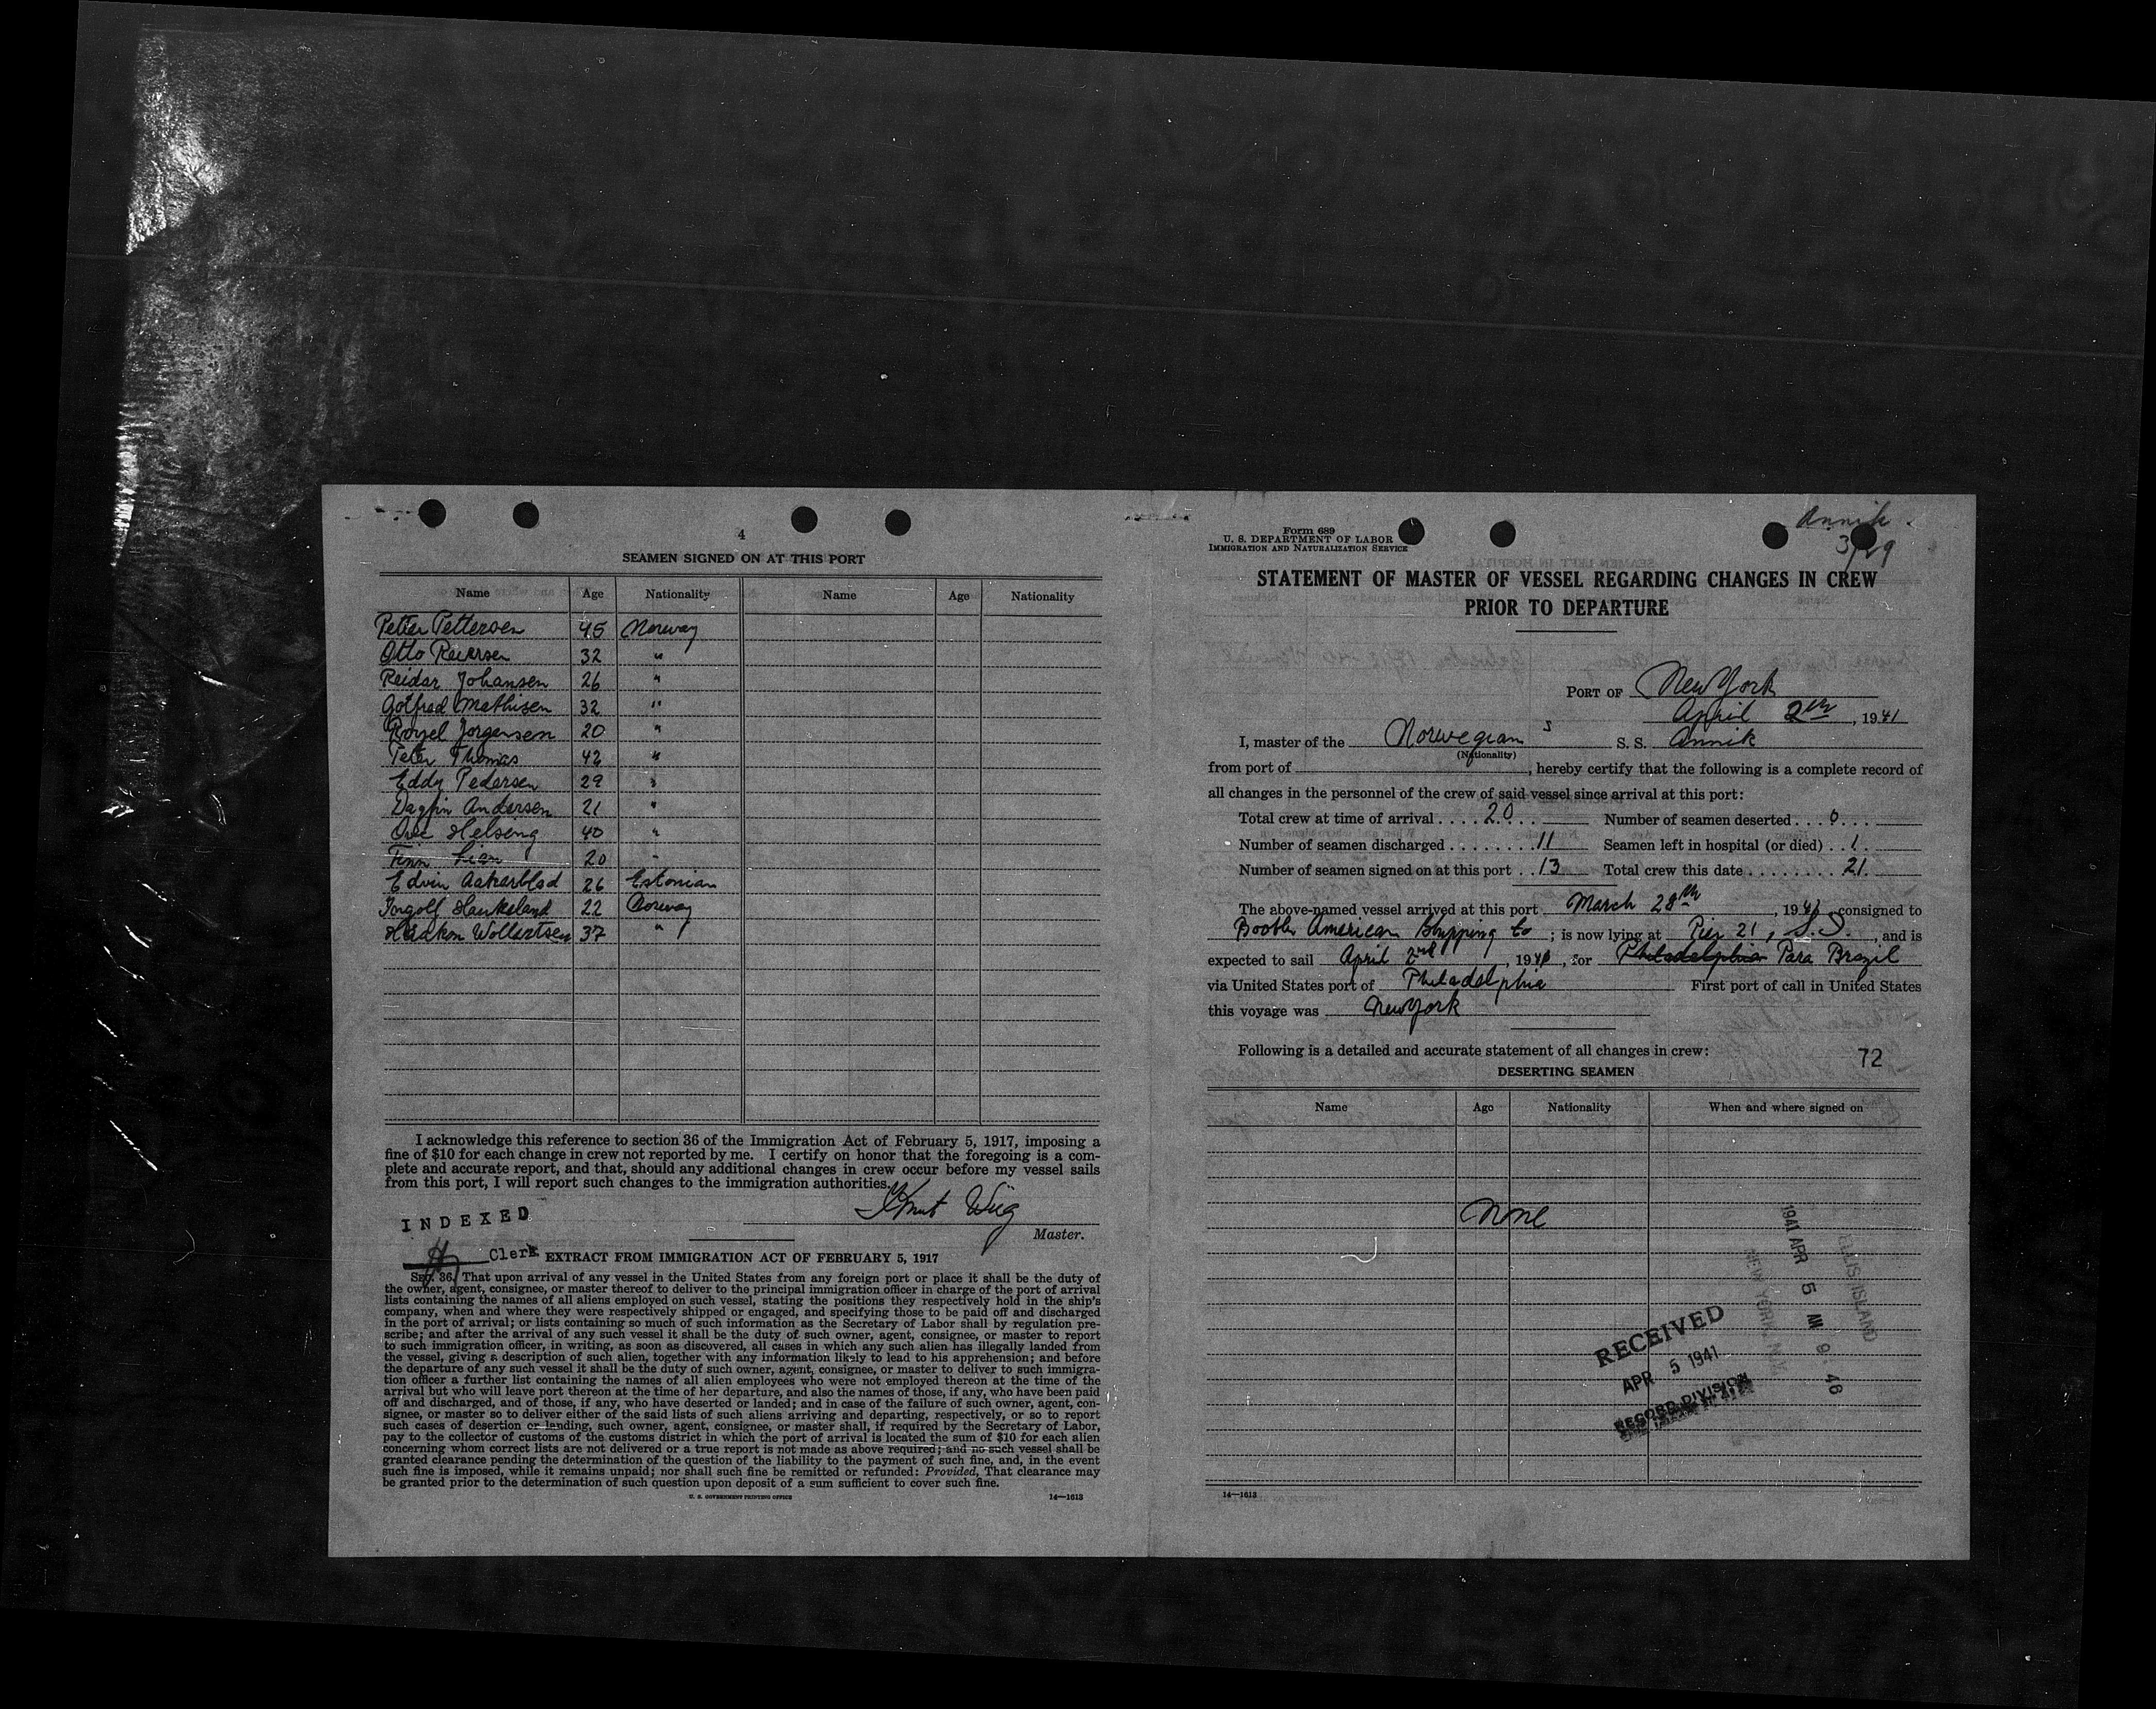 4
SEAMEN SIGNED ON AT THIS PORT
Name Age Nationality Name Age Nationality
Petter Pettersen 45 Norway
Otto Reiersen 32 "
Reidar Johansen 26 "
Gotfred Mathisen 32 "
Jorgensen 20 "
Peter Thomas 42 "
Eddy Pedersen 29 "
Dagfin Andersen 21 "
Ove Helseng 40 "
Finn Lian 20 "
Edvin 26 Estonian
Ingolf Haukeland 22 Norway
Haakon Wollertsen 37 "
I acknowledge this reference to section 36 of the Immigration Act of February 5, 1917, imposing a
fine of $10 for each change in crew not reported by me. I certify on honor that the foregoing is a com-
plete and accurate report, and that, should any additional changes in crew occur before my vessel sails
from this port, I will report such changes to the immigration authorities.
Knut Wiig
Master.
INDEXED
Clerk
EXTRACT FROM IMMIGRATION ACT OF FEBRUARY 5, 1917
SEC. 36. That upon arrival of any vessel in the United States from any foreign port or place it shall be the duty of
the owner, agent, consignee, or master thereof to deliver to the principal immigration officer in charge of the port of arrival
lists containing the names of all aliens employed on such vessel, stating the positions they respectively hold in the ship's
company, when and where they were respectively shipped or engaged, and specifying those to be paid off and discharged
in the port of arrival; or lists containing so much of such information as the Secretary of Labor shall by regulation pre-
scribe; and after the arrival of any such vessel it shall be the duty of such owner, agent, consignee, or master to report
to such immigration officer, in writing, as soon as discovered, all cases in which any such alien has illegally landed from
the vessel, giving a description of such alien, together with any information likely to lead to his apprehension; and before
the departure of any such vessel it shall be the duty of such owner, agent, consignee, or master to deliver to such immigra-
tion officer a further list containing the names of all alien employees who were not employed thereon at the time of the
arrival but who will leave port thereon at the time of her departure, and also the names of those, if any, who have been paid
off and discharged, and of those, if any, who have deserted or landed; and in case of the failure of such owner, agent, con-
signee, or master so to deliver either of the said lists of such aliens arriving and departing, respectively, or so to report
such cases of desertion or landing, such owner, agent, consignee, or master shall, if required by the Secretary of Labor,
pay to the collector of customs of the customs district in which the port of arrival is located the sum of $10 for each alien
concerning whom correct lists are not delivered or a true report is not made as above required; and no such vessel shall be
granted clearance pending the determination of the question of the liability to the payment of such fine, and, in the event
such fine is imposed, while it remains unpaid; nor shall such fine be remitted or refunded: Provided, That clearance may
be granted prior to the determination of such question upon deposit of a sum sufficient to cover such fine.
U. S. GOVERNMENT PRINTING OFFICE 14—1613
Annik
3/29
Form 689
U. S. DEPARTMENT OF LABOR
IMMIGRATION AND NATURALIZATION SERVICE
STATEMENT OF MASTER OF VESSEL REGARDING CHANGES IN CREW
PRIOR TO DEPARTURE
PORT OF New York
April 2th, 1941
I, master of the Norwegian S. S. Annik
(Nationality)
from port of , hereby certify that the following is a complete record of
all changes in the personnel of the crew of said vessel since arrival at this port:
Total crew at time of arrival 20 Number of seamen deserted 0
Number of seamen discharged 11 Seamen left in hospital (or died) 1
Number of seamen signed on at this port 13 Total crew this date 21
The above-named vessel arrived at this port March 28th, 1941, consigned to
Booth American Shipping Co; is now lying at Pier 21, S.S., and is
expected to sail April 2nd, 194 , for Philadelphia Para Brazil
via United States port of Philadelphia First port of call in United States
this voyage was New York
Following is a detailed and accurate statement of all changes in crew:
72
DESERTING SEAMEN
Name Age Nationality When and where signed on
None
1941 APR 5 AM 9:46
ELLIS ISLAND
NEW YORK, N.Y.
RECEIVED
APR 5 1941
RECORD DIVISION
14—1613